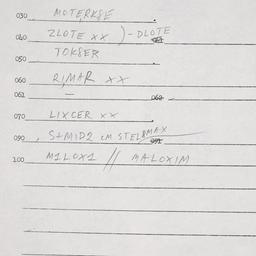 030 MOTERKSE
040 ZLOTE XX )-DLOTE
050 TOKSER
060 RIMAR XX
061 — 062 —
070 LIXCER XX
090 S+MID2 CM STELBMAX
100 MILOXI // MALOXIM